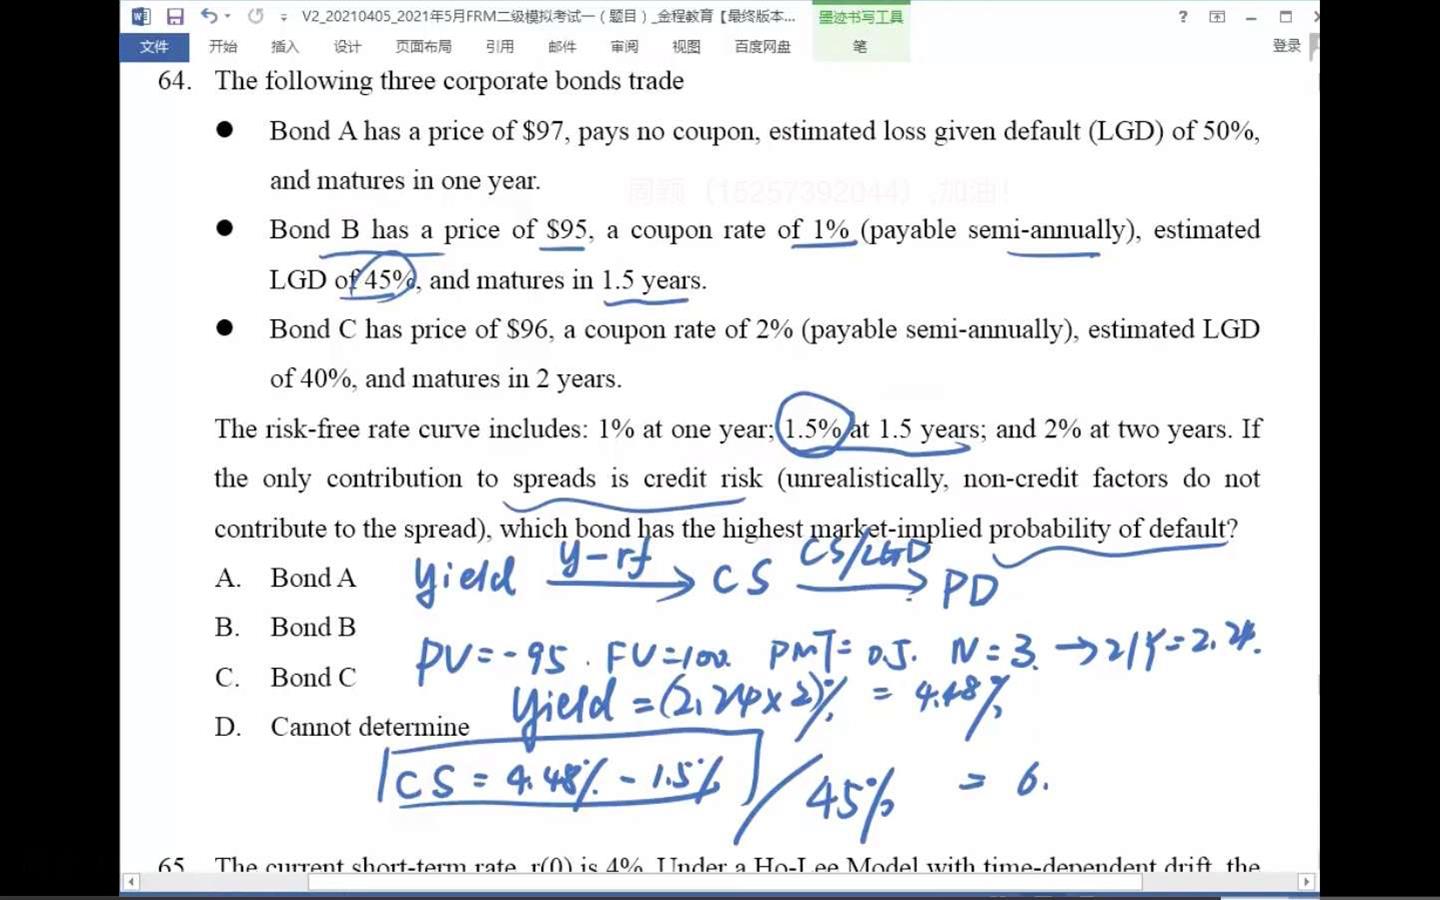 V2_20210405_2021年5月FRM二级模拟考试一（题目）_金程教育【最终版本...
墨迹书写工具
文件 开始 插入 设计 页面布局 引用 邮件 审阅 视图 百度网盘 笔 登录
64. The following three corporate bonds trade
● Bond A has a price of $97, pays no coupon, estimated loss given default (LGD) of 50%,
and matures in one year.
周颖（15257392044）,加油！
● Bond B has a price of $95, a coupon rate of 1% (payable semi-annually), estimated
LGD of 45%, and matures in 1.5 years.
● Bond C has price of $96, a coupon rate of 2% (payable semi-annually), estimated LGD
of 40%, and matures in 2 years.
The risk-free rate curve includes: 1% at one year; 1.5% at 1.5 years; and 2% at two years. If
the only contribution to spreads is credit risk (unrealistically, non-credit factors do not
contribute to the spread), which bond has the highest market-implied probability of default?
A. Bond A
yield y-rf CS CS/LGD PD
B. Bond B
PV=-95. FU=100. PMT=0.5. N=3. → 2/Y=2.24.
C. Bond C
yield=(2.24×2)% = 4.48%
D. Cannot determine
CS = 4.48% - 1.5% / 45% = 6.
65. The current short-term rate, r(0) is 4%. Under a Ho-Lee Model with time-dependent drift, the